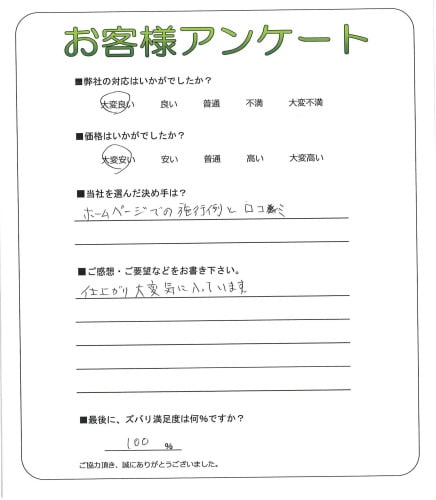 お客様アンケート
■弊社の対応はいかがでしたか？
大変良い 良い 普通 不満 大変不満
■価格はいかがでしたか？
大変安い 安い 普通 高い 大変高い
■当社を選んだ決め手は？
ホームページでの施行例と口コミ
■ご感想・ご要望などをお書き下さい。
仕上がり大変気に入っています
■最後に、ズバリ満足度は何％ですか？
100 ％
ご協力頂き、誠にありがとうございました。